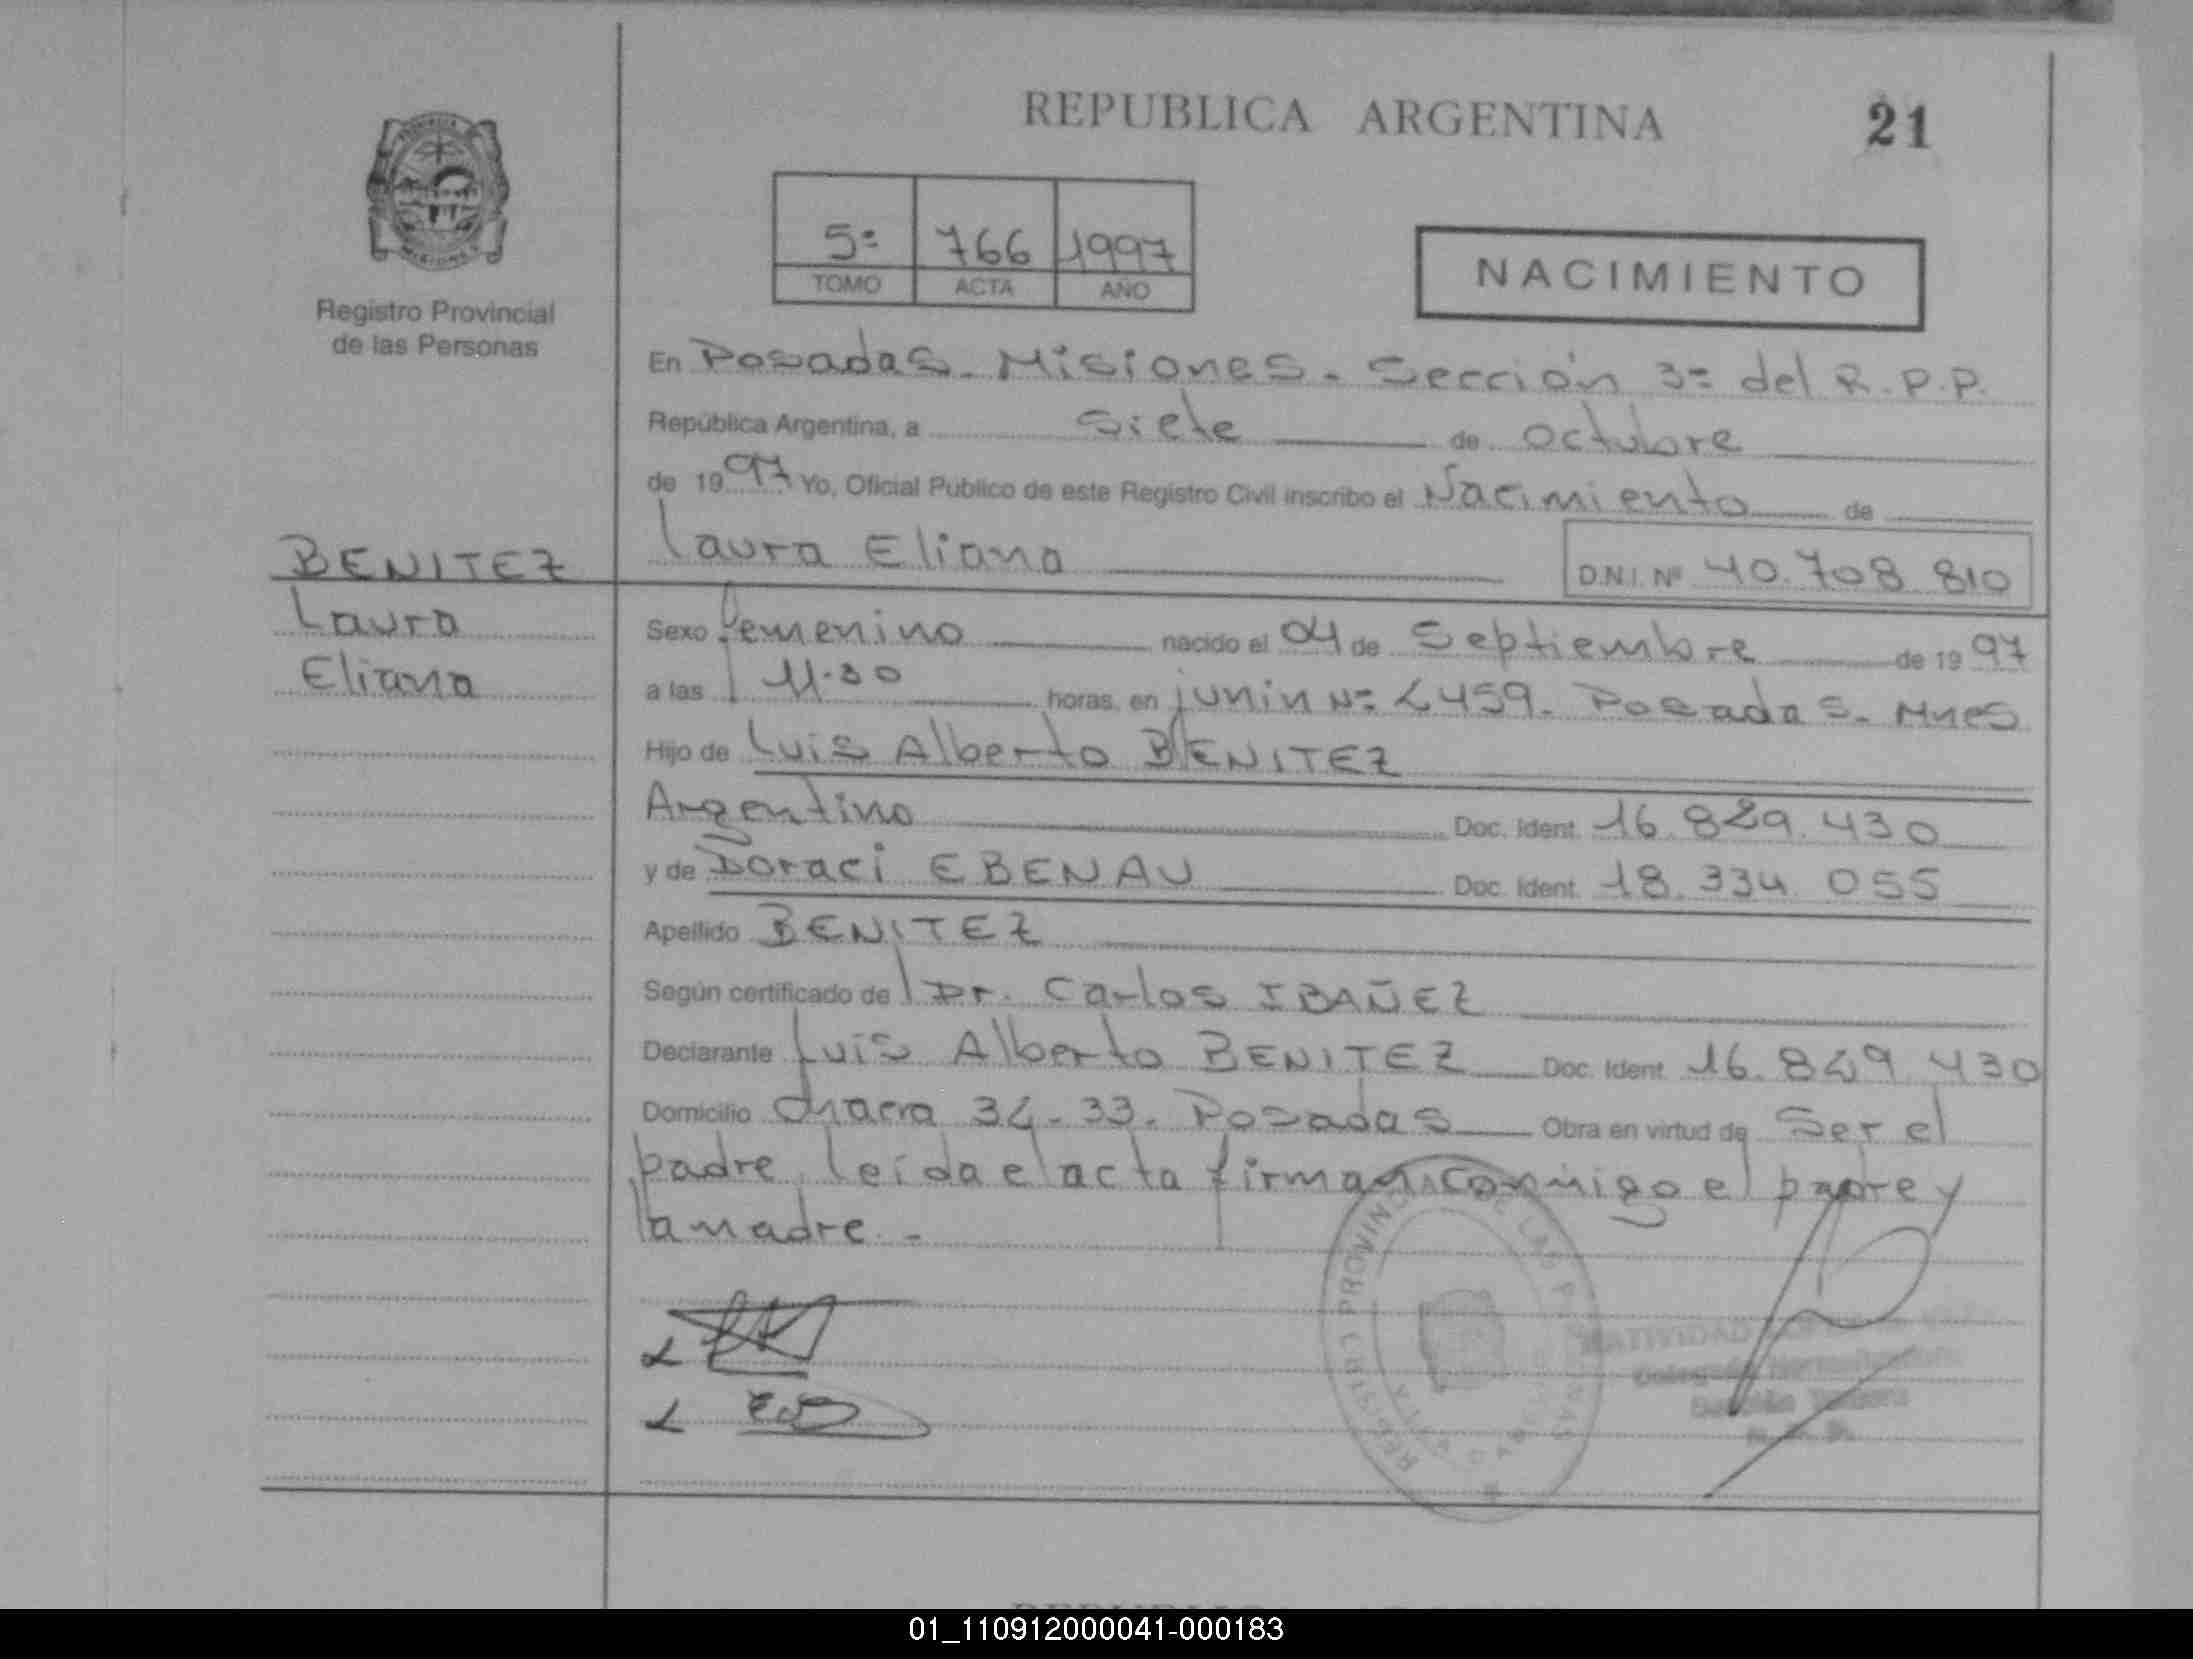 REPUBLICA ARGENTINA 21
5º 766 1997
TOMO ACTA AÑO
NACIMIENTO
Registro Provincial
de las Personas
En Posadas. Misiones. Sección 3º del R.P.P.
República Argentina, a siete de octubre
de 1997 Yo, Oficial Público de este Registro Civil inscribo el Nacimiento de
Laura Eliana D.N.I. Nº 40.708.810
BENITEZ
Laura
Eliana
Sexo femenino nacido el 04 de Septiembre de 1997
a las 11.30 horas, en junin Nº 2459. Posadas. Mnes
Hijo de Luis Alberto BENITEZ
Argentino Doc. Ident. 16.829.430
y de Doraci EBENAU Doc. Ident. 18.334.055
Apellido BENITEZ
Según certificado de Dr. Carlos IBAÑEZ
Declarante Luis Alberto BENITEZ Doc. Ident. 16.829.430
Domicilio chacra 32-33. Posadas Obra en virtud de Ser el
padre, leída el acta firman conmigo el padre y
la madre.-
REGISTRO PROVINCIAL DE LAS PERSONAS
NATIVIDAD
01_110912000041-000183